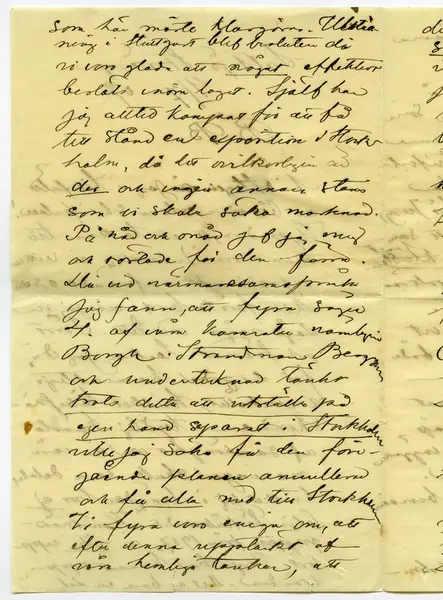 som här måste klargöras. Utställ
ning i Stuttgart blef besluten då
vi voro glada att något effektivt
beslöts inom laget. Själf har
jag alltid kämpat för att få
till stånd en exposition i Stock
holm, då det ovilkorligen är
der och ingen annan stans
som vi skola söka marknad.
På nåd och onåd gaf jag mig
och röstade för den förra.
Då vid närmare
jag fann, att fyra säger
4. af våra kamrater nämligen
Bergh. Strandman Bergman
och undertecknad tänkt
trots detta att utställa på
egen hand separat i Stockholm
ville jag söka få den före-
gående planen annullerad
och få alla med till Stockholm
Vi fyra voro eniga om, att
efter denna upptäckt af
våra hemliga tankar, att